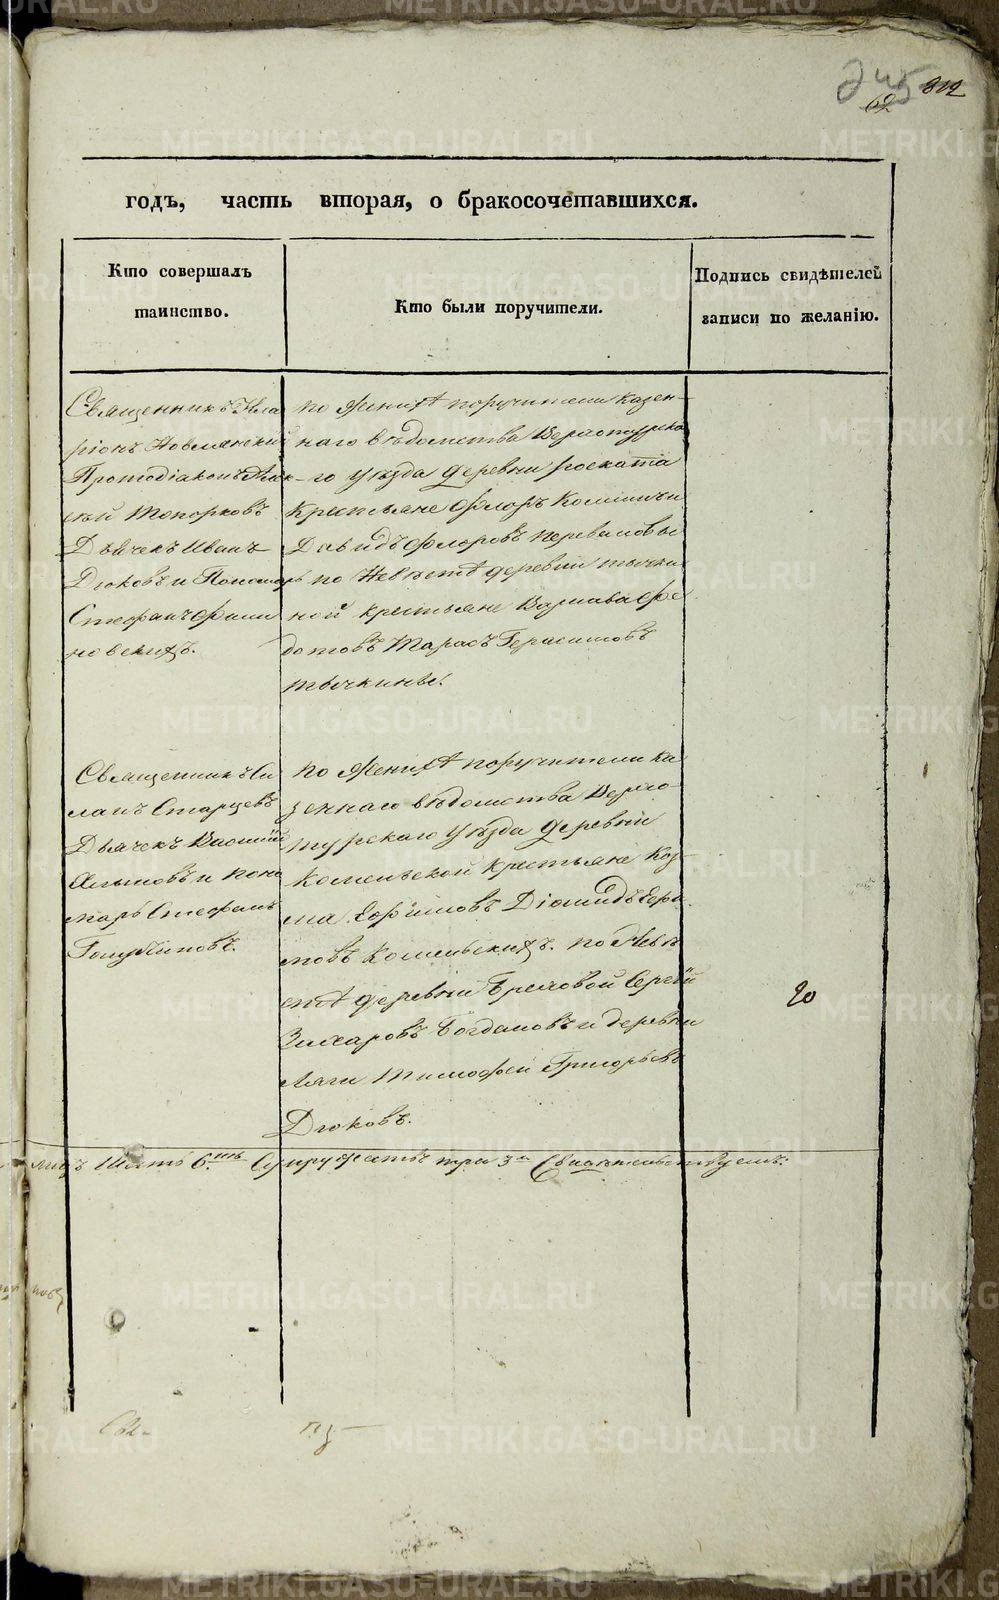 245
62 812
годъ, часть вторая, о бракосочетавшихся.
Кто совершалъ
таинство.
Кто были поручители.
Подпись свидѣтелей
записи по желанію.
Священникъ Ила
ріонъ
Протодіаконъ Алек
сѣй Топорковъ
Дьячекъ Иванъ
Дюковъ и Пономарь
Стефанъ Фили
новскихъ.
по женихѣ поручители казен-
наго вѣдомства Верхотурска-
го уѣзда деревни Роската
крестьяне Флоръ
Давидъ Флоровъ Переваловы
по невѣстѣ деревни тычки
ной крестьяне Варнава Фе
дотовъ Тарасъ Герасимовъ
тычкины.
Священникъ Си
лапъ Старцевъ
Дьячекъ Василій
и поно
марь Стефанъ
Голубчиковъ.
по женихѣ поручители ка
зеннаго вѣдомства Верхо-
турскаго уѣзда деревни
Комельской крестьяне Коз-
ма Ефимовъ Діомидъ
Комельскихъ. по невѣ
стѣ деревни Бреховой Сергѣй
Захаровъ Богдановъ и деревни
Ляги Тимофей Григорьевъ
Дюковъ.
20
лицъ Шесть 6.ть Супружествъ три 3и Свидѣтельствуемъ: